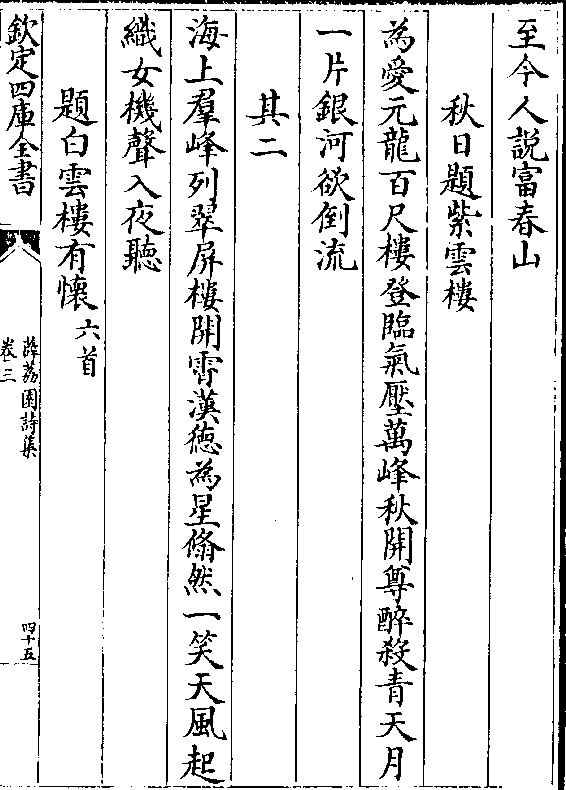 至今人説富春山
秋日題紫雲樓
為愛元龍百尺樓登臨氣壓萬峰秋開尊醉殺青天月
一片銀河欲倒流
其二
海上羣峰列翠屏樓開霄漢徳為星翛然一笑天風起
織女機聲入夜聽
題白雲樓有懐六首
欽定四庫全書
薜荔園詩集
卷三
四十五